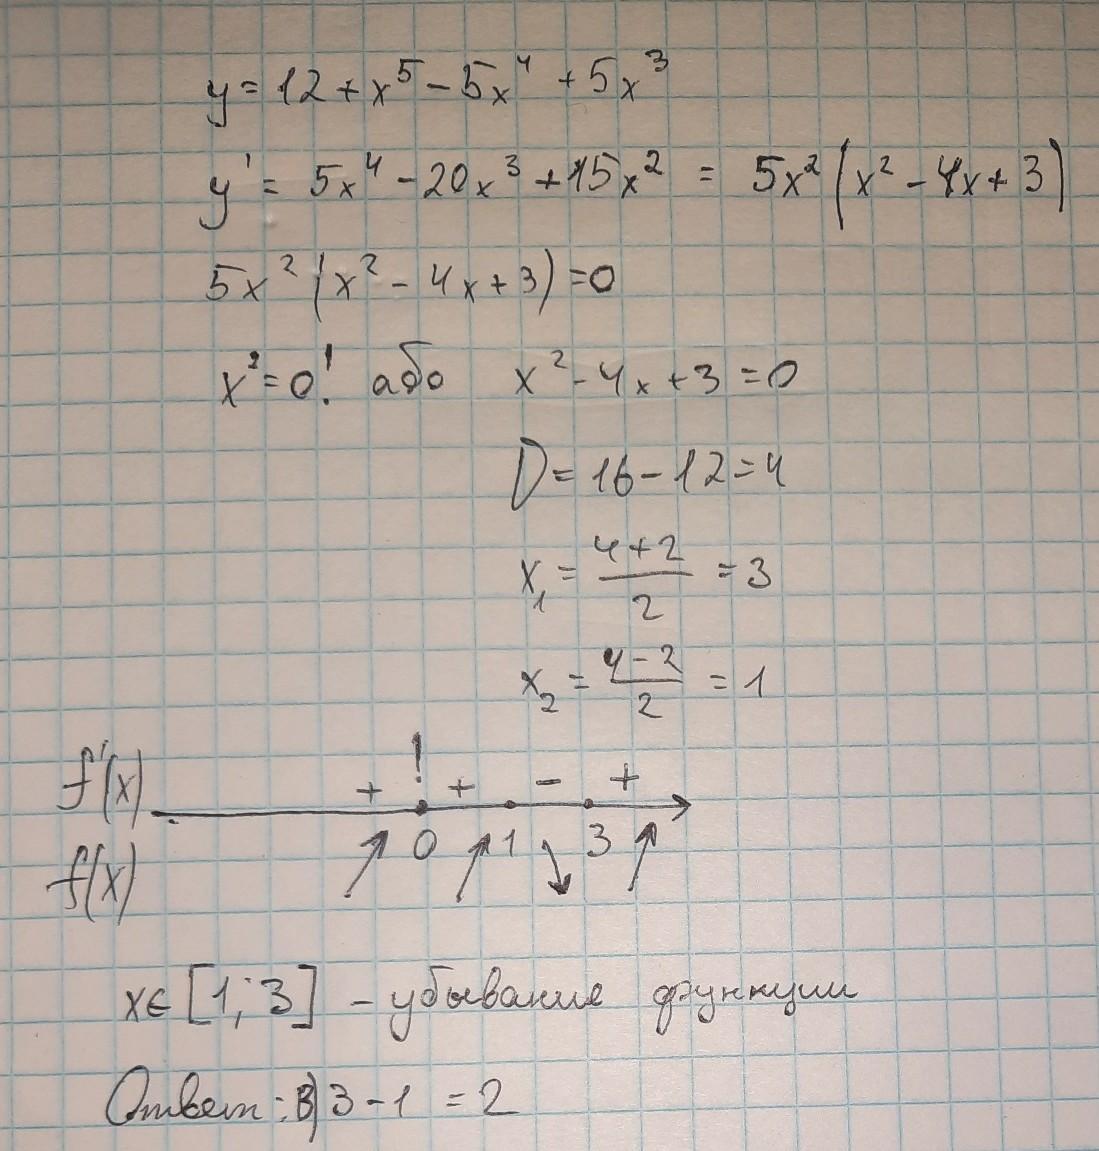 y = 12 + x⁵ - 5x⁴ + 5x³
y' = 5x⁴ - 20x³ + 15x² = 5x² (x² - 4x + 3)
5x² (x² - 4x + 3) = 0
x² = 0! або x² - 4x + 3 = 0
D = 16 - 12 = 4
x₁ = (4 + 2)/2 = 3
x₂ = (4 - 2)/2 = 1
f'(x) + ! + - +
f(x) ↗ 0 ↗ 1 ↘ 3 ↗
x ∈ [1; 3] - убывание функции
Ответ: В) 3 - 1 = 2